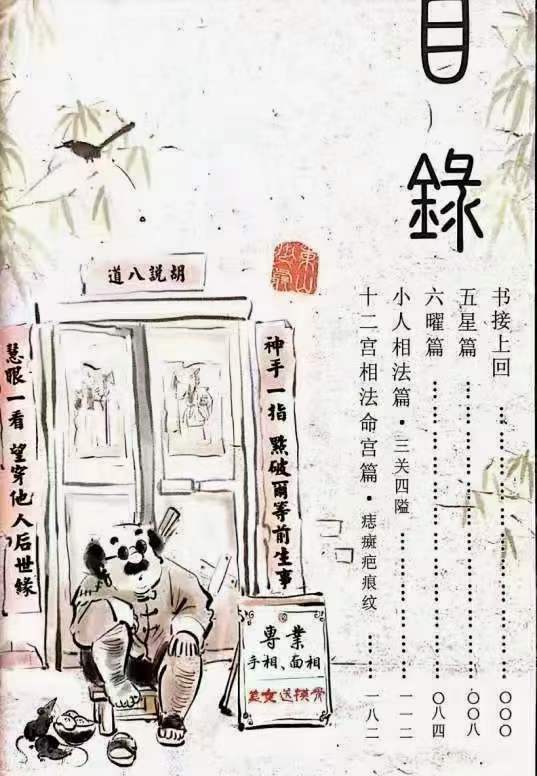 目錄
书接上回……………………〇〇〇
五星篇……………………〇〇八
六曜篇……………………〇八四
小人相法篇·三关四隘……………………一一二
十二宫相法命宫篇·痣癍疤痕纹……一八二
胡說八道
神手一指 點破爾等前生事
慧眼一看 望穿他人后世緣
專業
手相、面相
美女送摸骨